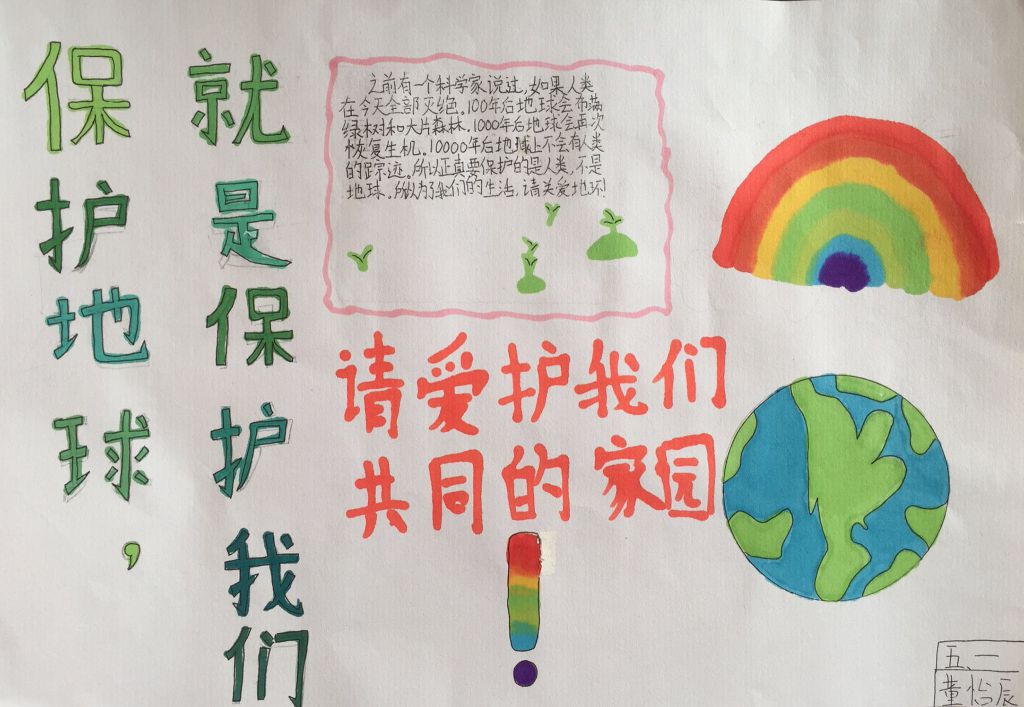 保护地球，
就是保护我们
之前有一个科学家说过，如果人类
在今天全部灭绝。100年后地球会布满
绿树和大片森林。1000年后地球会再次
恢复生机。10000年后地球上不会有人类
的踪迹。所以正真要保护的是人类，不是
地球。所以为了我们的生活，请关爱地环！
请爱护我们
共同的家园
！
五、一
童怡辰